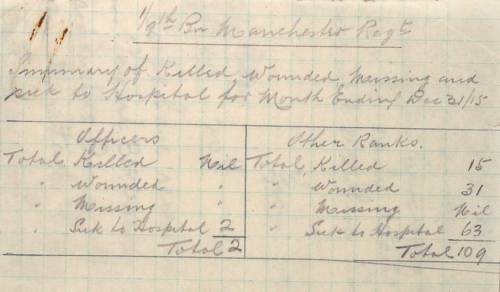 1/9th Bn Manchester Regt
Summary of Killed, Wounded, Missing and
sick to Hospital for Month Ending Dec 31/15
Officers
Total Killed Nil
" Wounded "
" Missing "
" Sick to Hospital 2
Total 2
Other Ranks.
Total Killed 15
" Wounded 31
" Missing Nil
" Sick to Hospital 63
Total 109